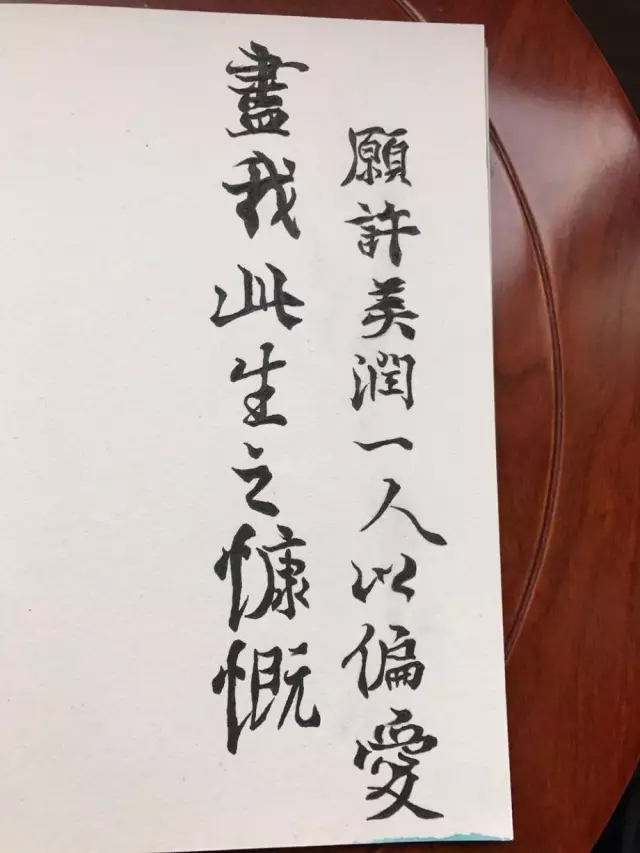 願許美潤一人以偏愛
盡我此生之慷慨